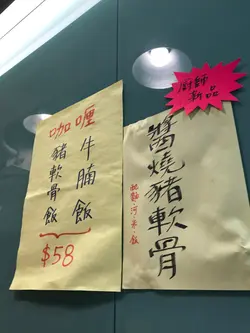 咖喱
牛腩飯
豬軟骨飯
$58
廚師
新品
醬燒豬軟骨
配麵·河·米·飯